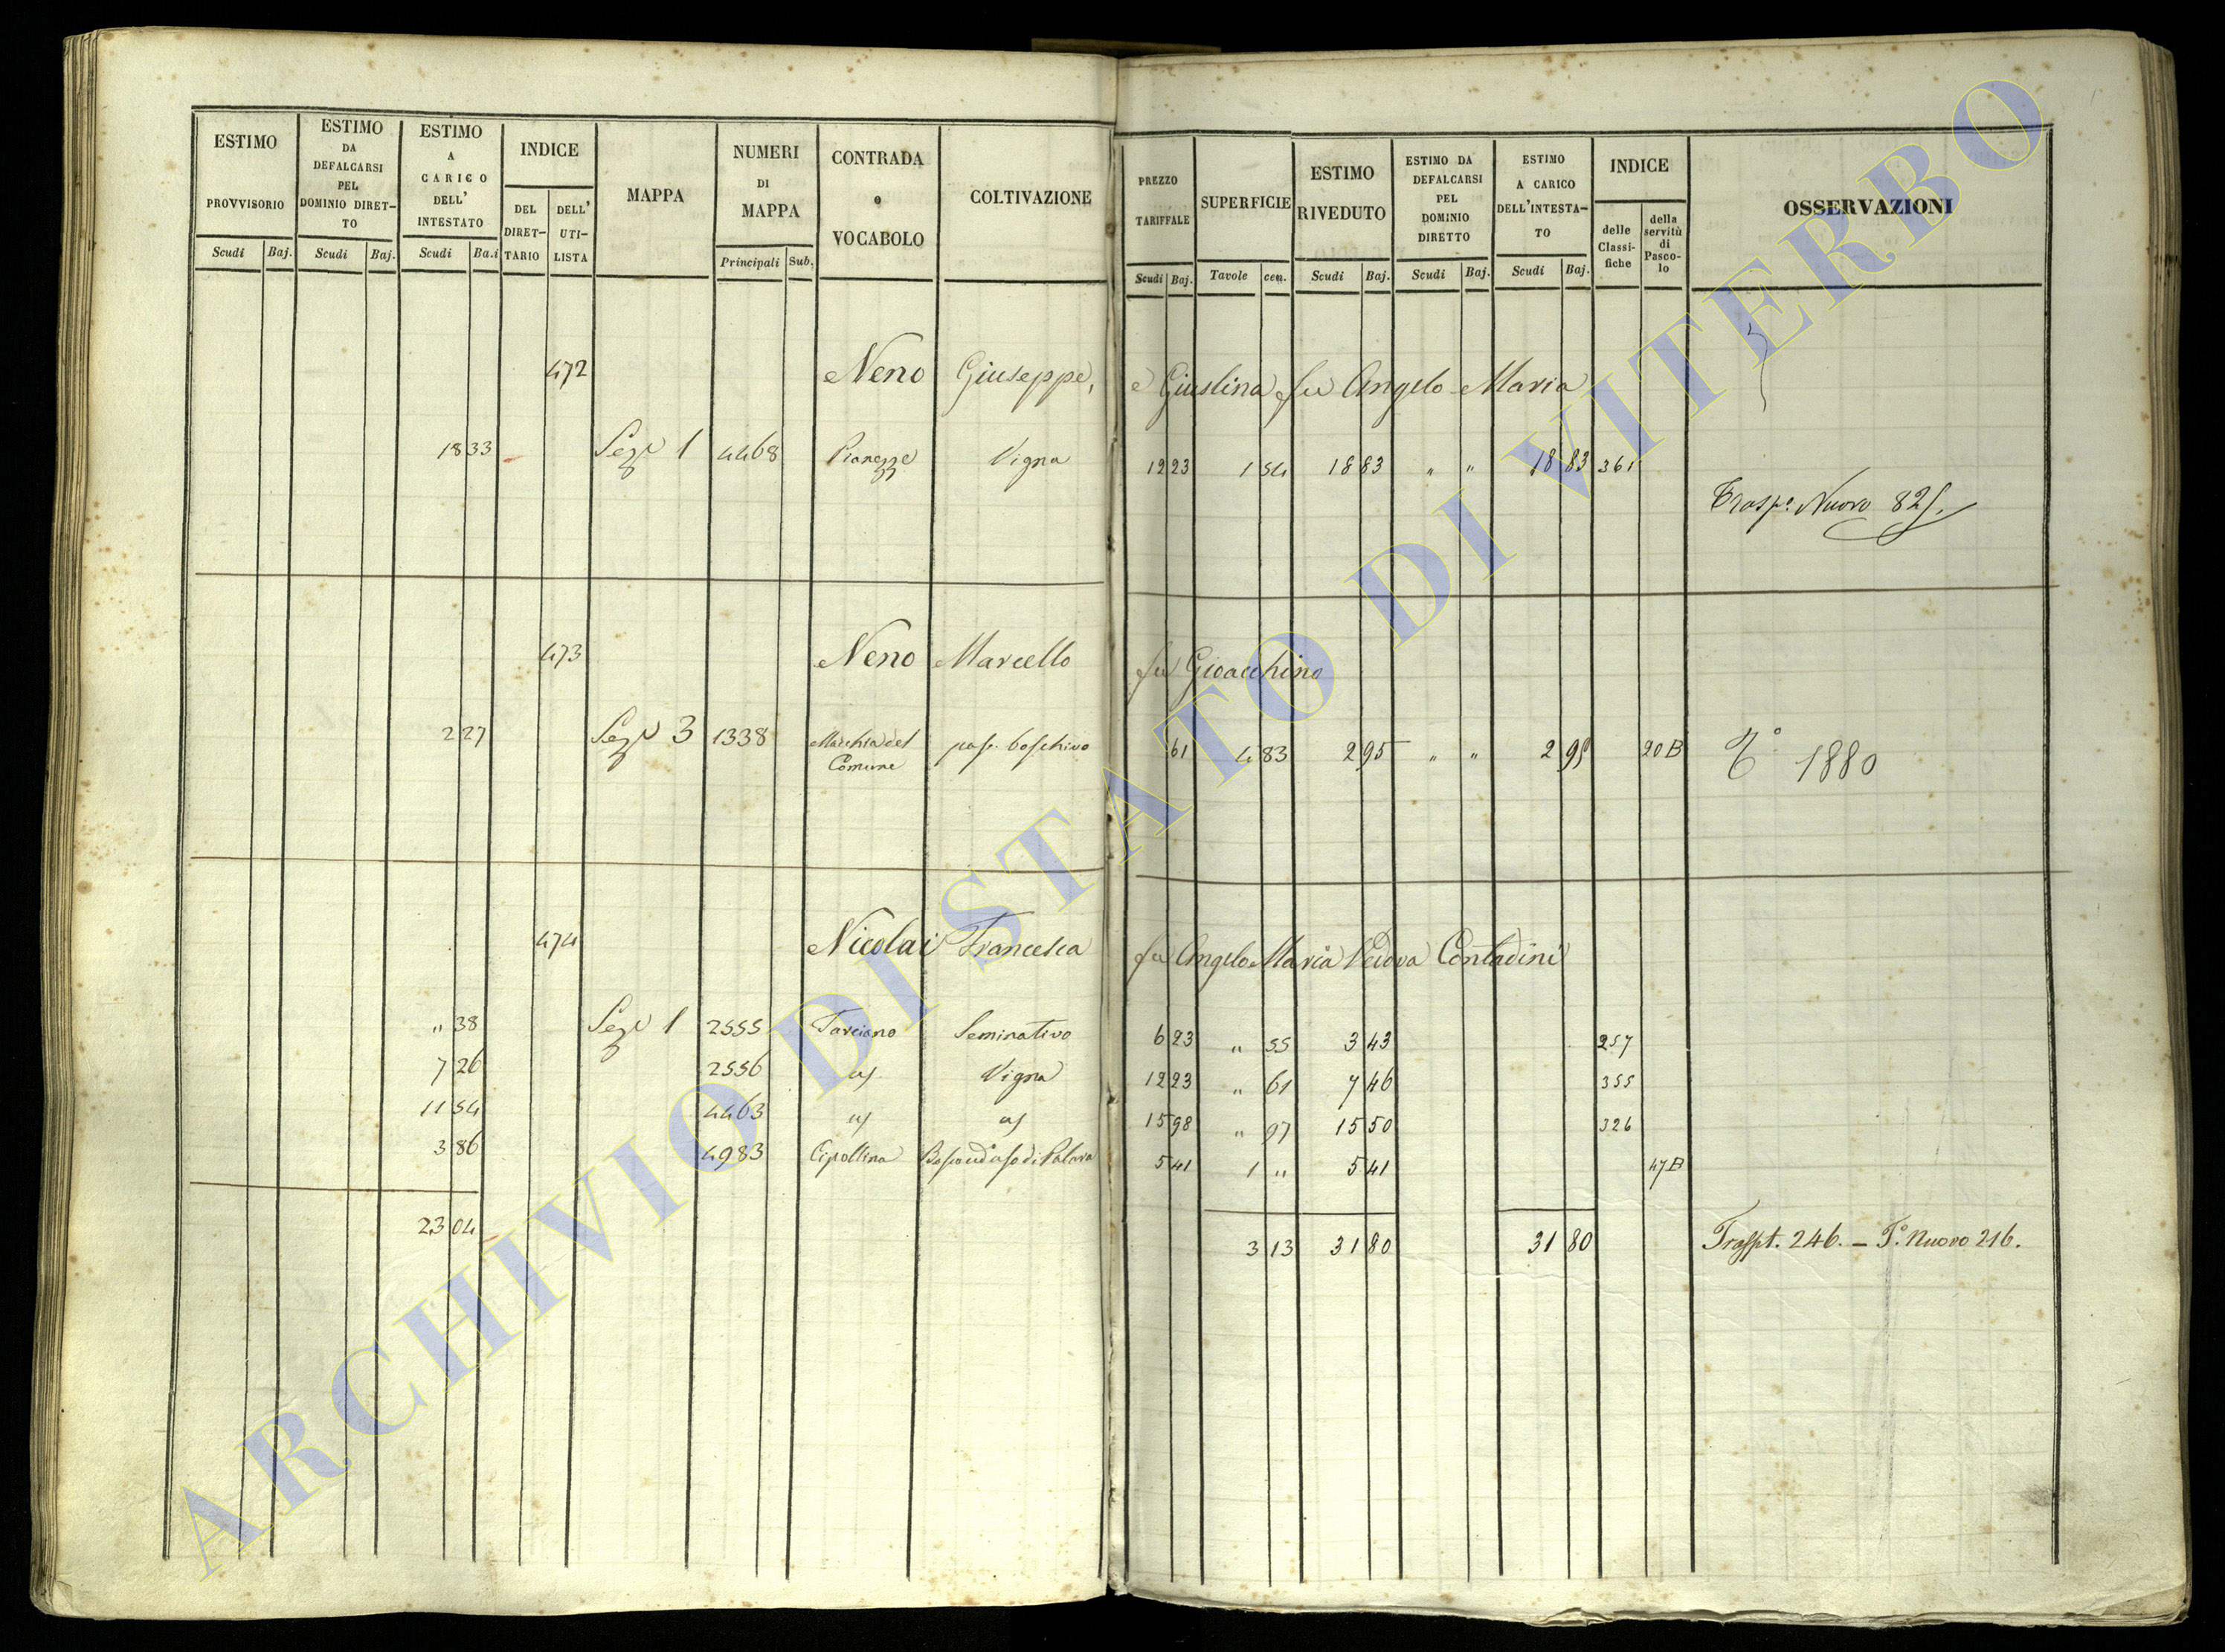 ESTIMO PROVVISORIO
Scudi Baj.
ESTIMO DA DEFALCARSI PEL DOMINIO DIRET-TO
Scudi Baj.
ESTIMO A CARICO DELL' INTESTATO
Scudi Ba.i
INDICE
DEL DIRET-TARIO
DELL' UTI-LISTA
MAPPA
NUMERI DI MAPPA
Principali Sub.
CONTRADA o VOCABOLO
COLTIVAZIONE
PREZZO TARIFFALE
Scudi Baj.
SUPERFICIE
Tavole cen.
ESTIMO RIVEDUTO
Scudi Baj.
ESTIMO DA DEFALCARSI PEL DOMINIO DIRETTO
Scudi Baj.
ESTIMO A CARICO DELL'INTESTA-TO
Scudi Baj.
INDICE
delle Classi-fiche
della servitù di Pasco-lo
OSSERVAZIONI
472 Neno Giuseppe, e Giustina fu Angelo Maria
18 33 Seze 1 4468 Pianezze Vigna 12 23 1 54 18 83 " " 18 83 361
Trasp.o Nuovo 825.
473 Neno Marcello fu Gioacchino
2 27 Seze 3 1338 Macchia del Comune pas. boschivo 61 4 83 2 95 " " 2 95 20B T.o 1880
474 Nicolai Francesca fu Angelo Maria Vedova Contadini
" 38 Seze 1 2555 Tarciano Seminativo 6 23 " 55 3 43 257
7 26 2556 as Vigna 12 23 " 61 7 46 355
11 54 4463 as as 15 98 " 97 15 50 326
3 86 4983 Cipollina 5 41 1 " 5 41 47B
23 04 3 13 31 80 31 80 Traspt. 246. - T.o Nuovo 216.
ARCHIVIO DI STATO DI VITERBO